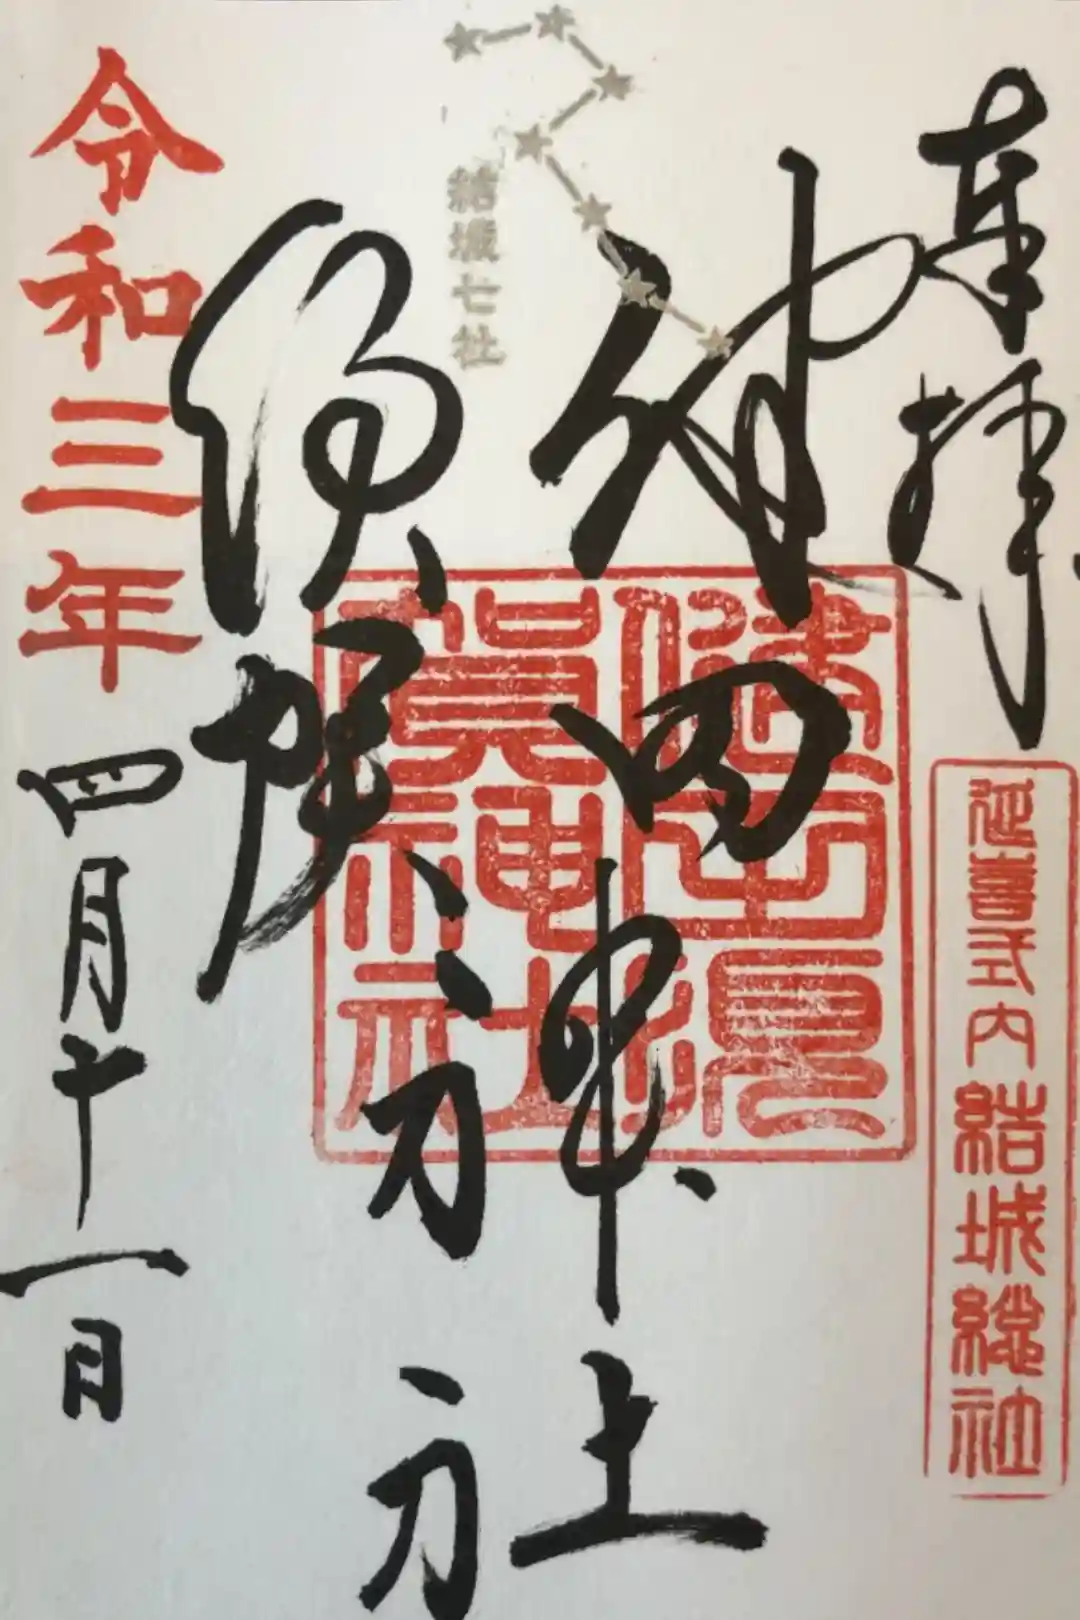 奉拝
延喜式内結城總社
結城七社
健田
須賀
神社
健田須
賀神社
令和三年四月十一日